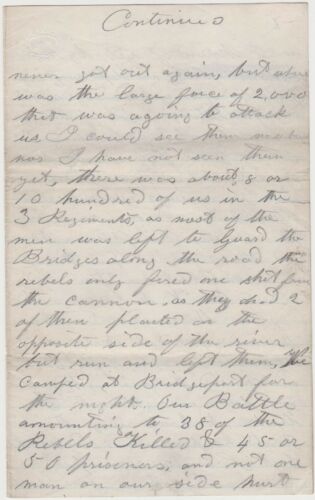 Continued
never got out again, but where
was the large force of 2,000
that was agoing to attack
us I could see them no whe
nas I have not seen them
yet, there was about 8 or
10 hundred of us in the
3 Regiments, as most of the
men was left to Guard the
Bridges along the road the
rebels only fired one shot from
the cannon. as they had 2
of them planted on the
opposite side of the river
but run and left them, We
camped at Bridgeport for
the night. Our Battle
amounting to 38 of the
Rebells Killed & 45 or
50 prisoners, and not one
man on our side hurt